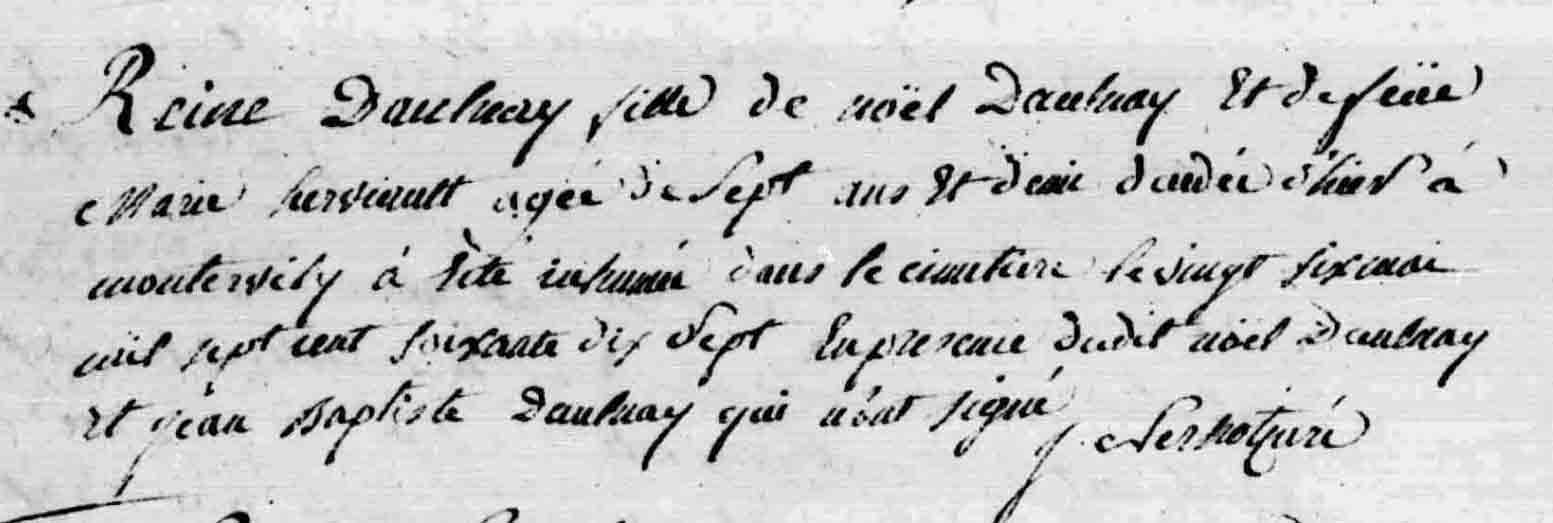 Reine Daulnay fille de noël Daulnay Et de feüe
Marie hervieult agée de Sept ans Et demi decedée d'hier à
montervily á Eté inhumée dans le cimetiere le vingt six mai
mil sept cent soixante dix Sept En presence dudit noël Daulnay
Et jean Baptiste Daulnay qui n'ont signé
curé